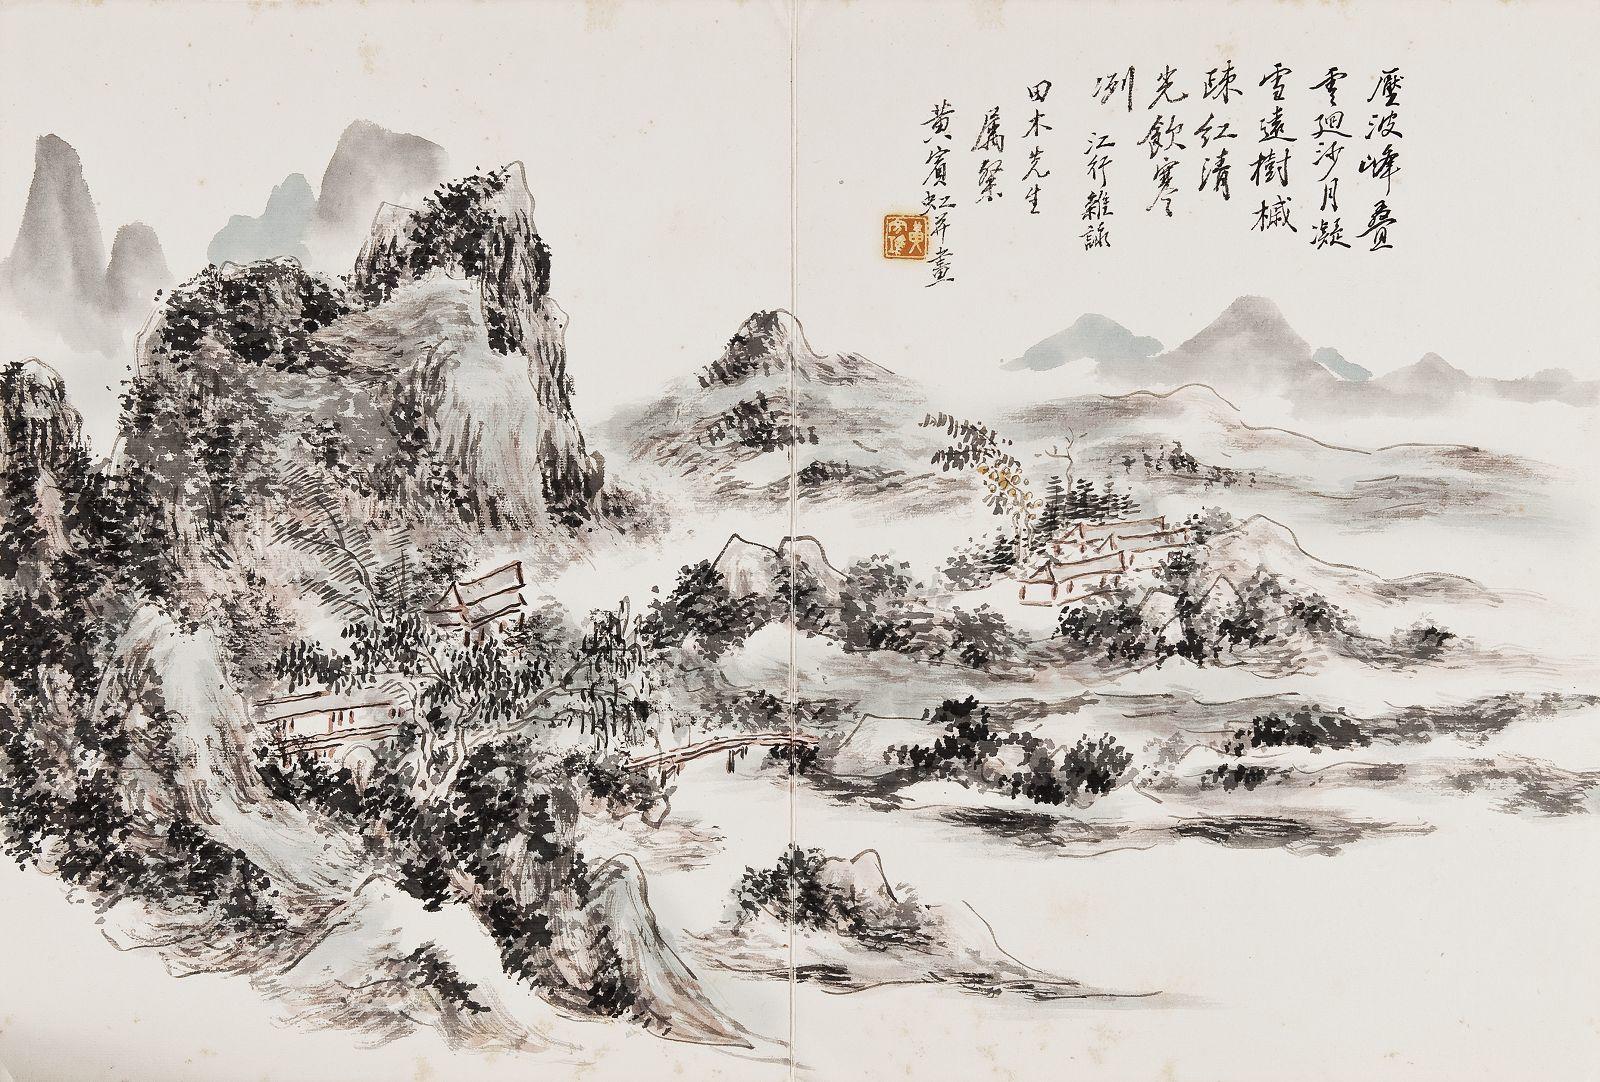 壓波峰疊
雲迴沙月凝
雪遠樹槭
疎紅清
光飲寒
冽 江行雜詠
田木先生
屬粲
黃賓虹并畫